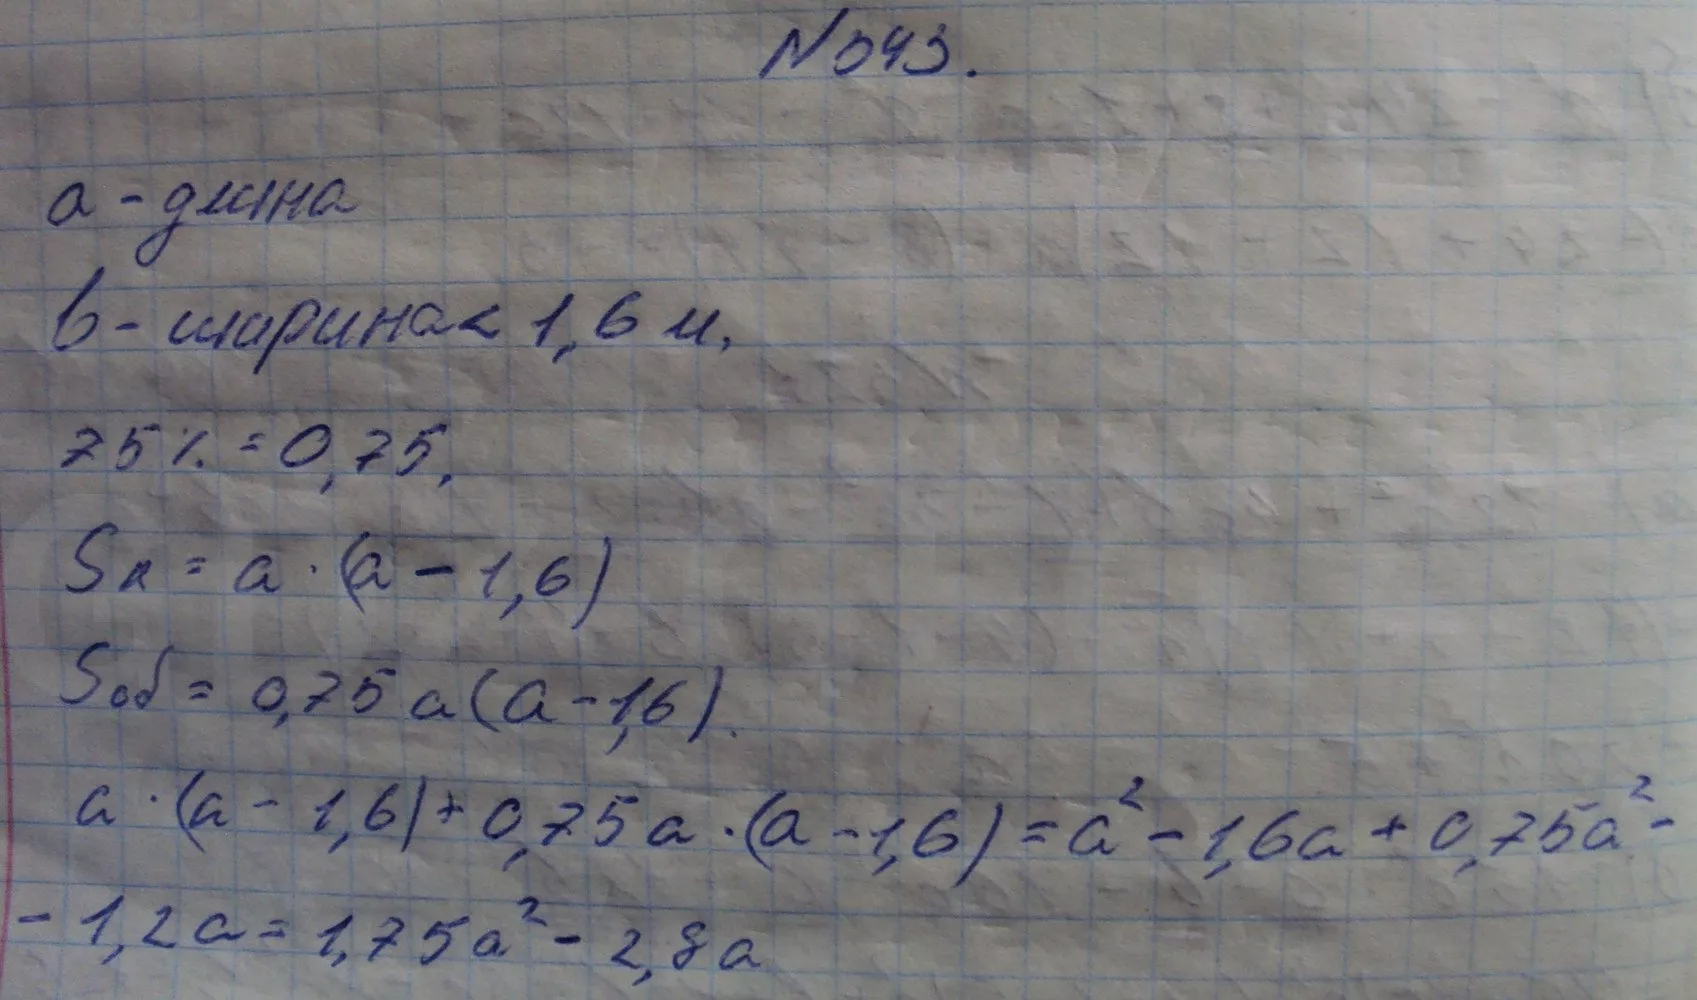 N 543.
a - длина
b - ширина < 1,6 м.
75% = 0,75.
Sк = a · (a - 1,6)
Sоб = 0,75 a (a - 1,6).
a · (a - 1,6) + 0,75a · (a - 1,6) = a² - 1,6a + 0,75a² -
- 1,2a = 1,75a² - 2,8a